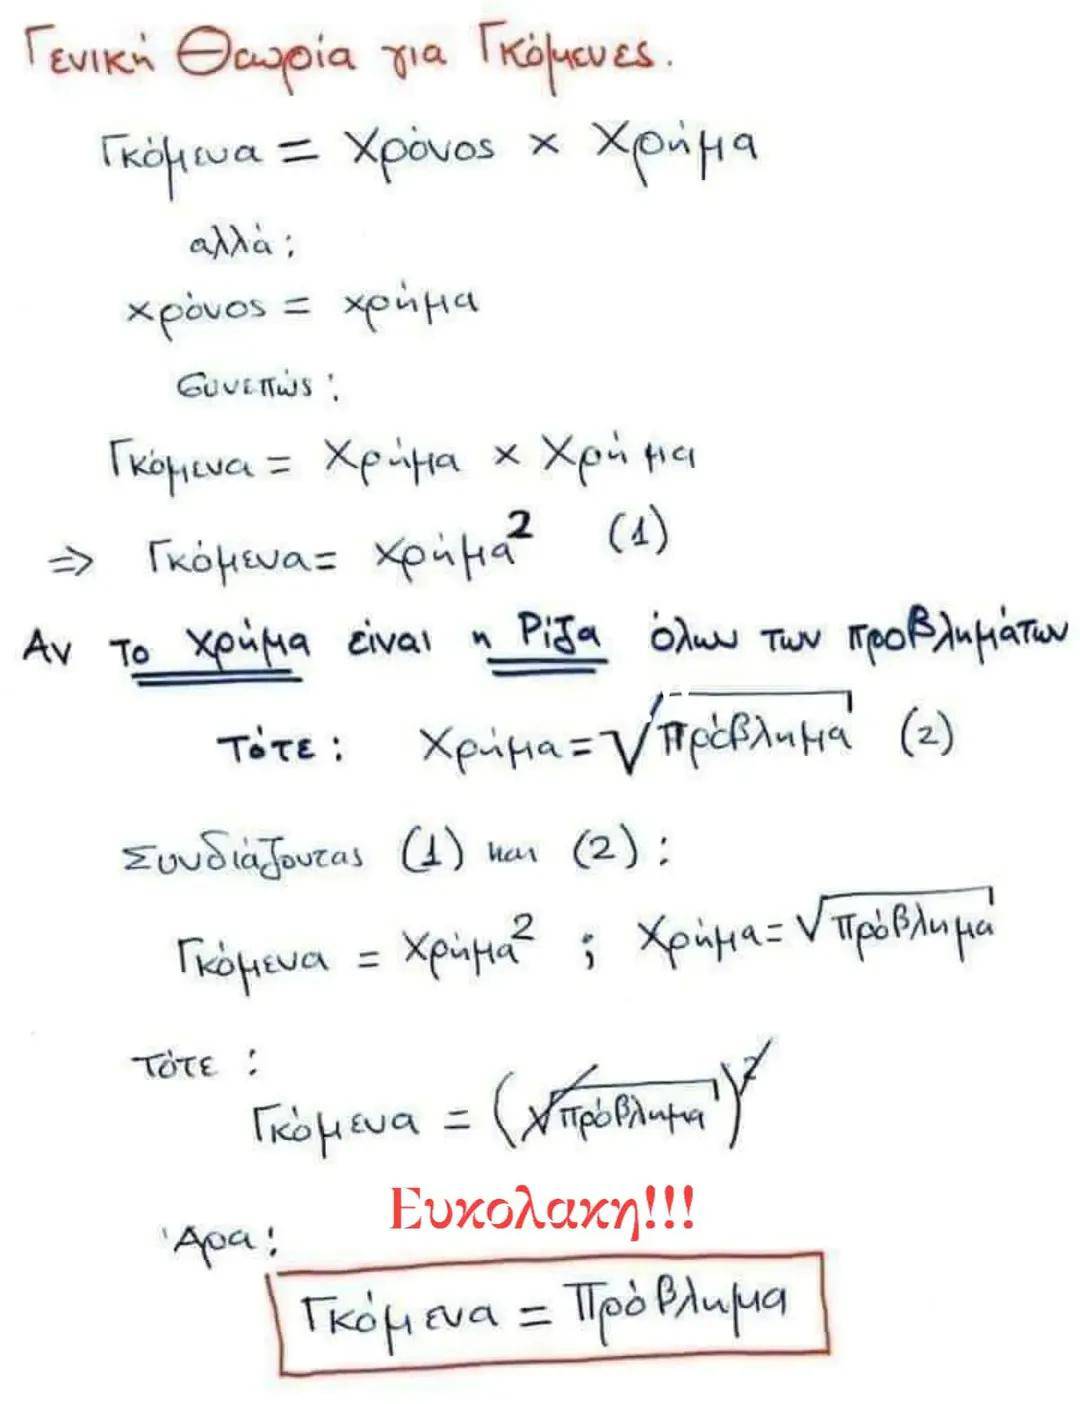 Γενική Θεωρία για Γκόμενες.
Γκόμενα = Χρόνος × Χρήμα
αλλά:
χρόνος = χρήμα
συνεπώς:
Γκόμενα = Χρήμα × Χρήμα
⇒ Γκόμενα = χρήμα² (1)
Αν το χρήμα είναι η Ρίζα όλων των προβλημάτων
τότε: Χρήμα = √πρόβλημα (2)
Συνδιάζοντας (1) και (2):
Γκόμενα = Χρήμα² ; Χρήμα = √πρόβλημα
τότε:
Γκόμενα = (√πρόβλημα)²
Ευκολακη!!!
Άρα:
Γκόμενα = Πρόβλημα